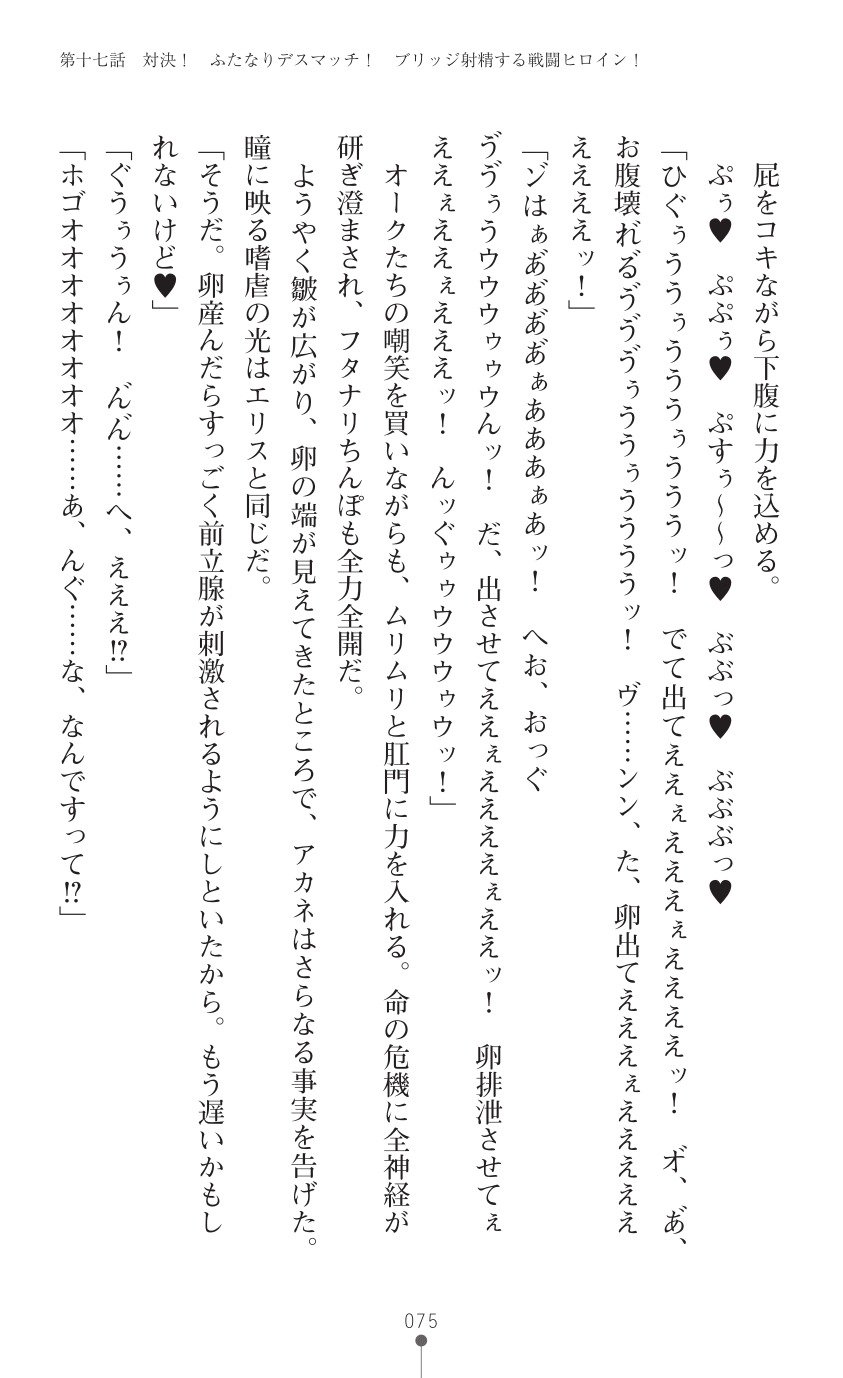 第十七話　対決！　ふたなりデスマッチ！　ブリッジ射精する戦闘ヒロイン！
屁をコキながら下腹に力を込める。
ぷぅ♥　ぷぷぅ♥　ぷすぅ～～っ♥　ぶぶっ♥　ぶぶぶっ♥
「ひぐぅううぅうううぅうううッ！　でて出てええぇええええぇええええッ！　オ゛、あ゛、
お腹壊れるゔゔゔぅううぅううううッ！　ヴ……ンン、た、卵出てえええぇえええええ
ええええッ！」
「ン゛はぁあ゛あ゛あ゛あ゛ぁあああぁあッ！　へお、おっぐ
ゔゔぅうウウウゥゥウんッ！　だ、出させてええぇえええええぇええッ！　卵排泄させてぇ
ええぇええぇえええッ！　んッぐゥゥウウウゥウッ！」
オークたちの嘲笑を買いながらも、ムリムリと肛門に力を入れる。命の危機に全神経が
研ぎ澄まされ、フタナリちんぽも全力全開だ。
ようやく皺が広がり、卵の端が見えてきたところで、アカネはさらなる事実を告げた。
瞳に映る嗜虐の光はエリスと同じだ。
「そうだ。卵産んだらすっごく前立腺が刺激されるようにしといたから。もう遅いかもし
れないけど♥」
「ぐうぅうぅん！　ん゛ん゛……へ、えええ!?」
「ホゴオオオオオオオオ……あ、んぐ……な、なんですって!?」
075